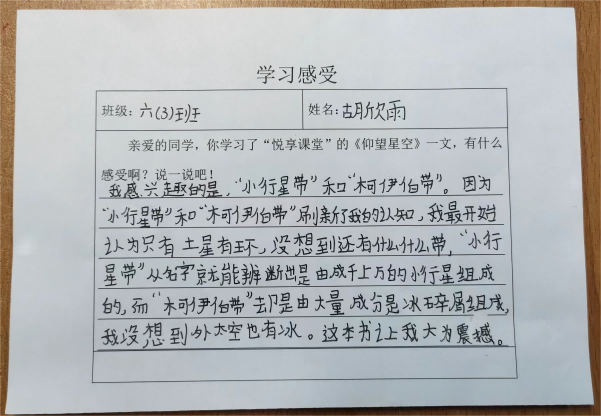 学习感受
班级：六(3)班 姓名：胡欣雨
亲爱的同学，你学习了“悦享课堂”的《仰望星空》一文，有什么
感受啊？说一说吧！
我感兴趣的是，“小行星带”和“柯伊伯带”。因为
“小行星带”和“柯伊伯带”刷新了我的认知，我最开始
认为只有土星有环，没想到还有什么什么带，“小行
星带”从名字就能辨断出是由成千上万的小行星组成
的，而“柯伊伯带”却是由大量成分是冰碎屑组成，
我没想到外太空也有冰。这本书让我大为震撼。